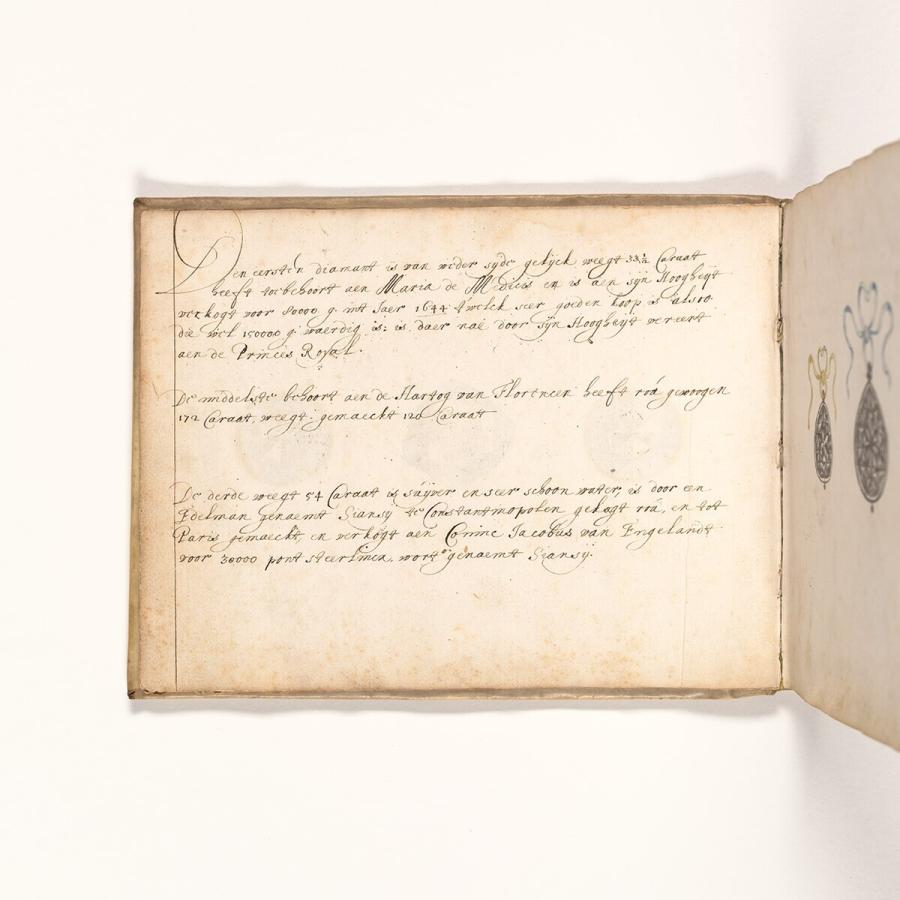 Den eersten diamant is van weder syde gelyck weegt 33½ Caraat
heeft toebehoort aen Maria de Medicis en is aen syn Hoogheyt
verkogt voor 80000 g. int Jaer 1644 't welck seer goeden koop is also
die wel 150000 g: waerdig is: is, daer naē door syn Hoogheyt vereert
aen de Princes Royal.
De middelste behoort aen de Hartog van Florencen heeft roū gewoogen
172 Caraat, weegt gemaeckt 120 Caraat
De derde weegt 54 Caraat is suÿver en seer schoon water, is door een
Edelman genaemt Siansy te Constantinopolen gekogt roū, en tot
Paris gemaeckt, en verkogt aen Coninc Jacobus van Engelandt
voor 30000 pont steerlincx, wort genaemt Siansy.